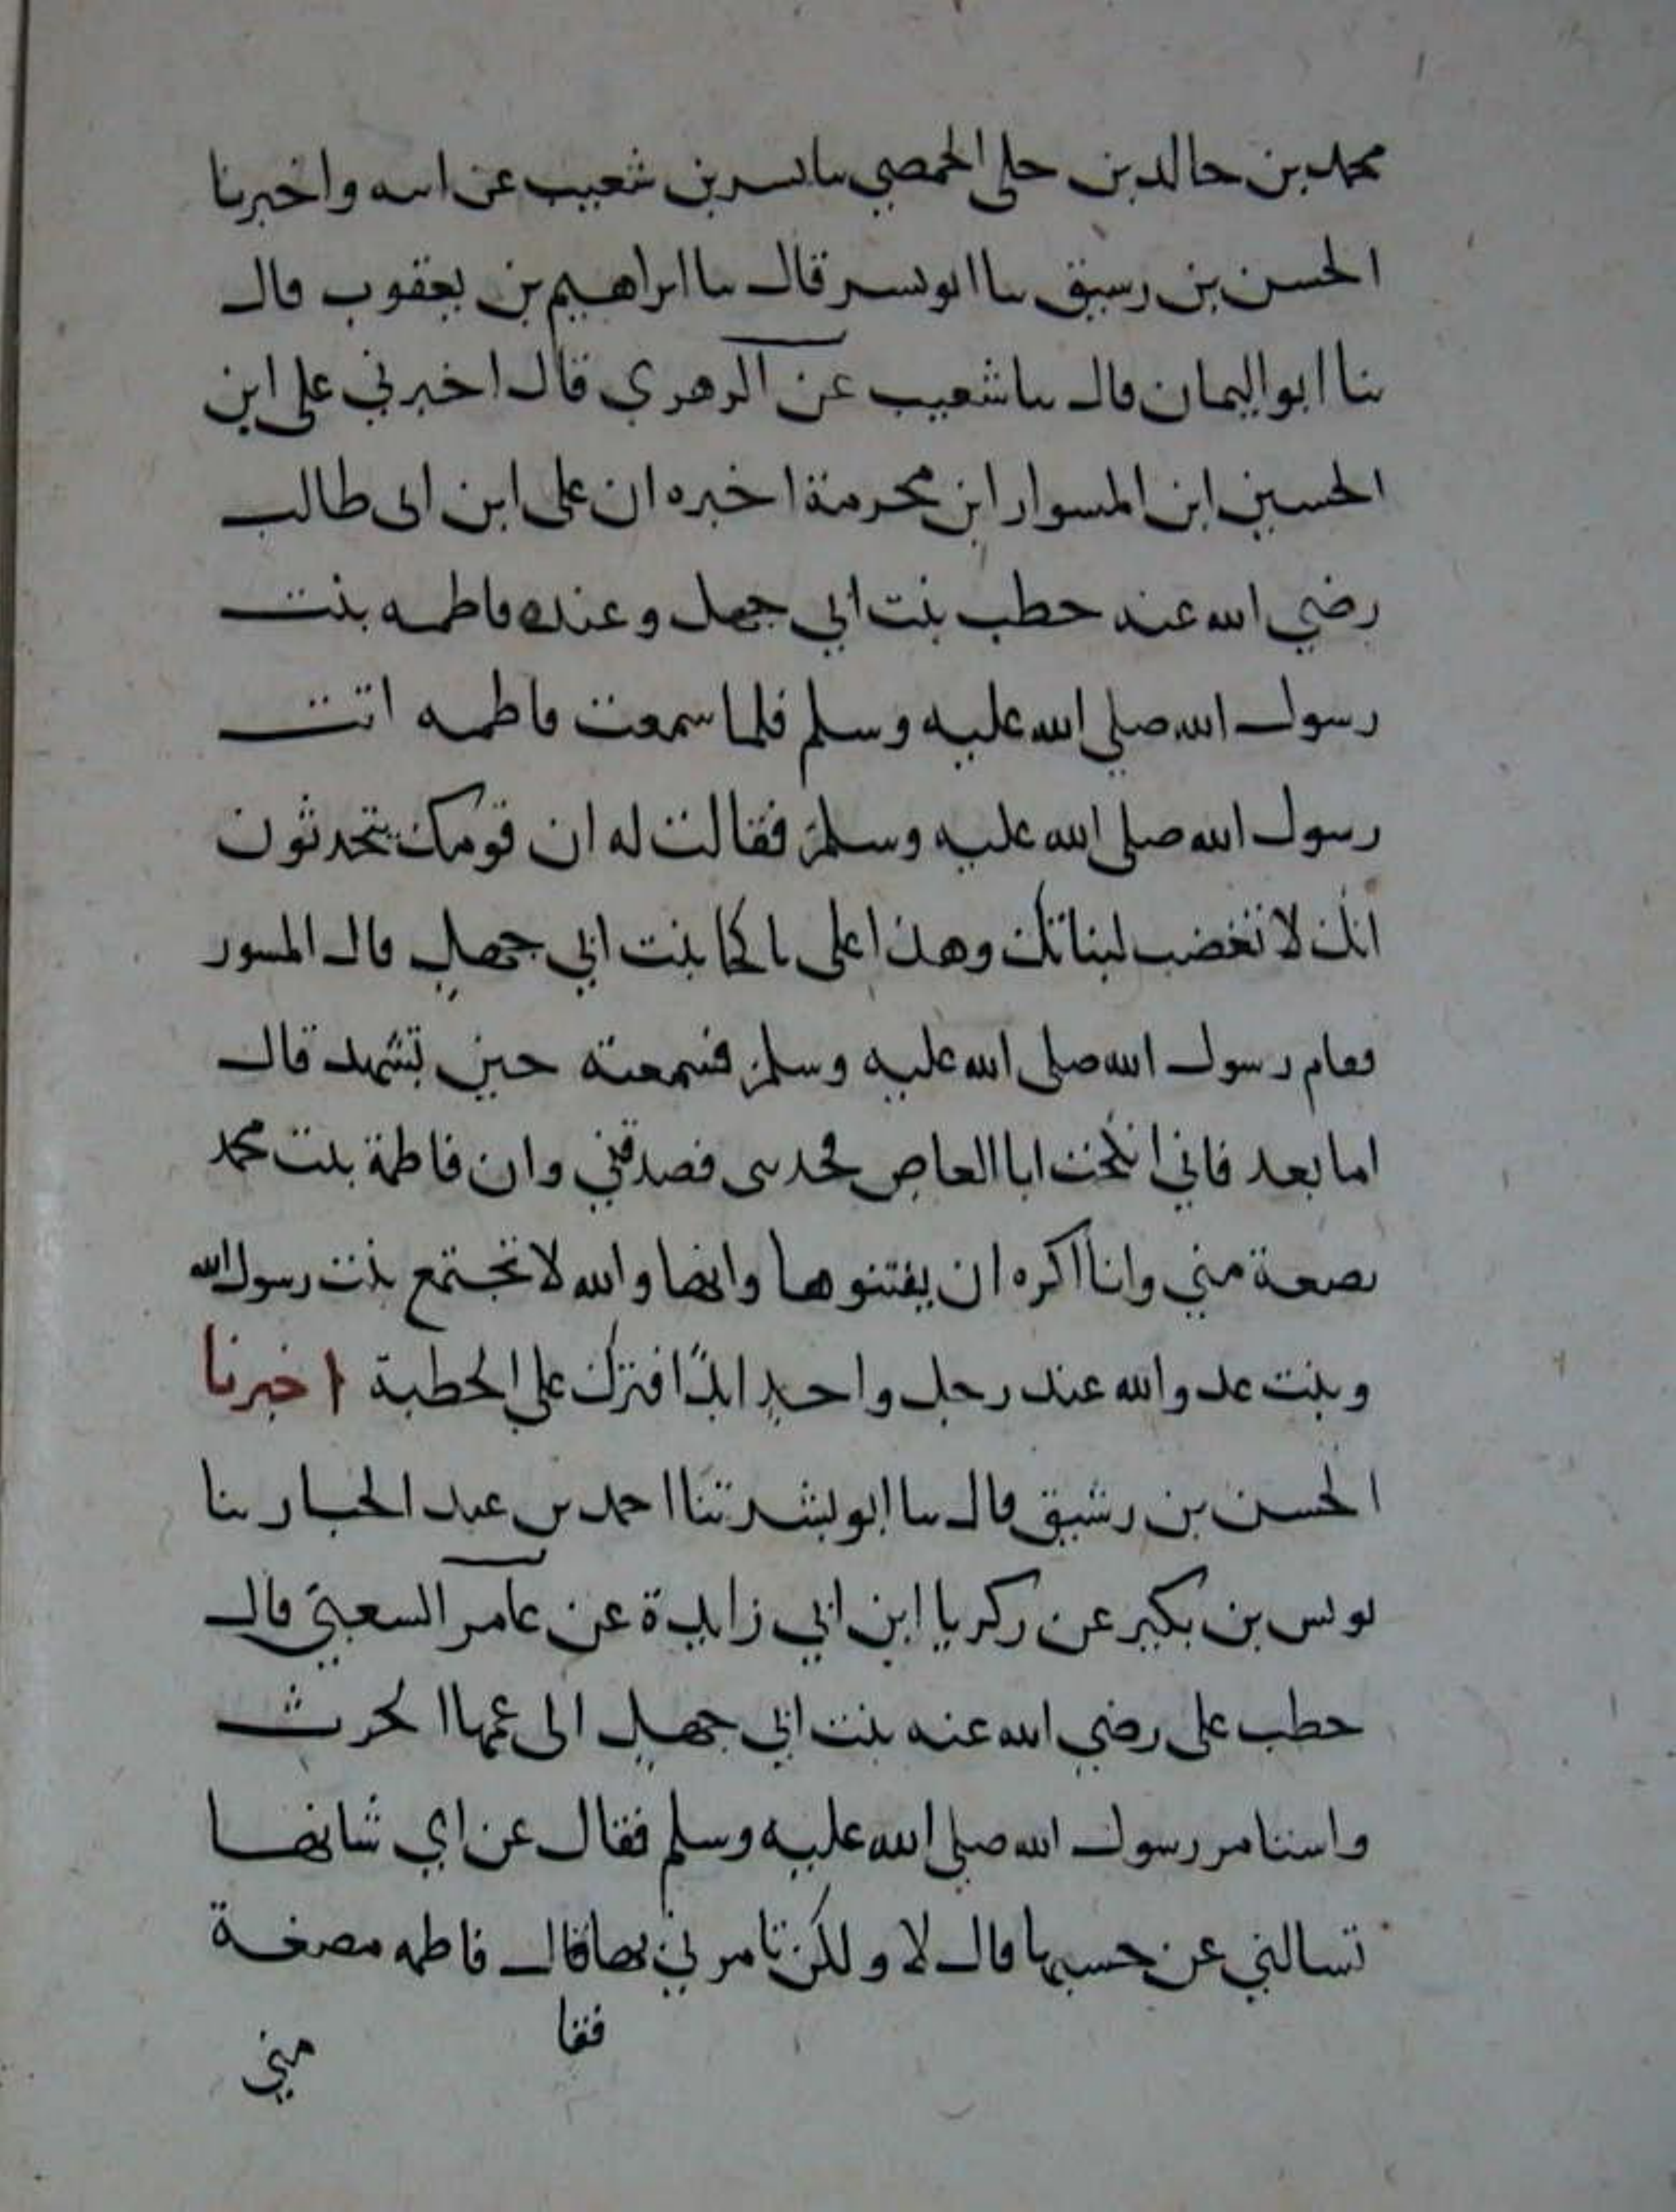 محمد بن خالد بن خلي الحمصي ثنا بشر بن شعيب عن ابيه واخبرنا
الحسن بن رسيق ثنا ابو بسر قال ثنا ابراهيم بن يعقوب قال
ثنا ابو اليمان قال ثنا شعيب عن الزهري قال اخبرني علي ابن
الحسين ابن المسوار ابن مخرمة اخبره ان علي ابن ابى طالب
رضي الله عنه خطب بنت ابي جهل وعنده فاطمه بنت
رسول الله صلي الله عليه وسلم فلما سمعت فاطمه اتت
رسول الله صلي الله عليه وسلم فقالت له ان قومك يتحدثون
انك لا تغضب لبناتك وهذا على ناكحا بنت ابي جهل قال المسور
فقام رسول الله صلى الله عليه وسلم فسمعته حين تشهد قال
اما بعد فاني انكحت ابا العاص فحدثنى فصدقني وان فاطمة بنت محمد
بضعة مني وانا اكره ان يفتنوها وانها والله لا تجتمع بنت رسول الله
وبنت عدو الله عند رجل واحد ابدًا فترك علي الخطبة اخبرنا
الحسن بن رشيق قال ثنا ابو بشر ثنا احمد بن عبد الجبار ثنا
يونس بن بكير عن زكريا ابن ابي زايدة عن عامر الشعبي قال
خطب على رضي الله عنه بنت ابي جهل الى عمها الحرث
واستامر رسول الله صلي الله عليه وسلم فقال عن اي شانها
تسالني عن حسبها قال لا ولكن تامرني بها قال فاطمه مضغة
فقا
مني